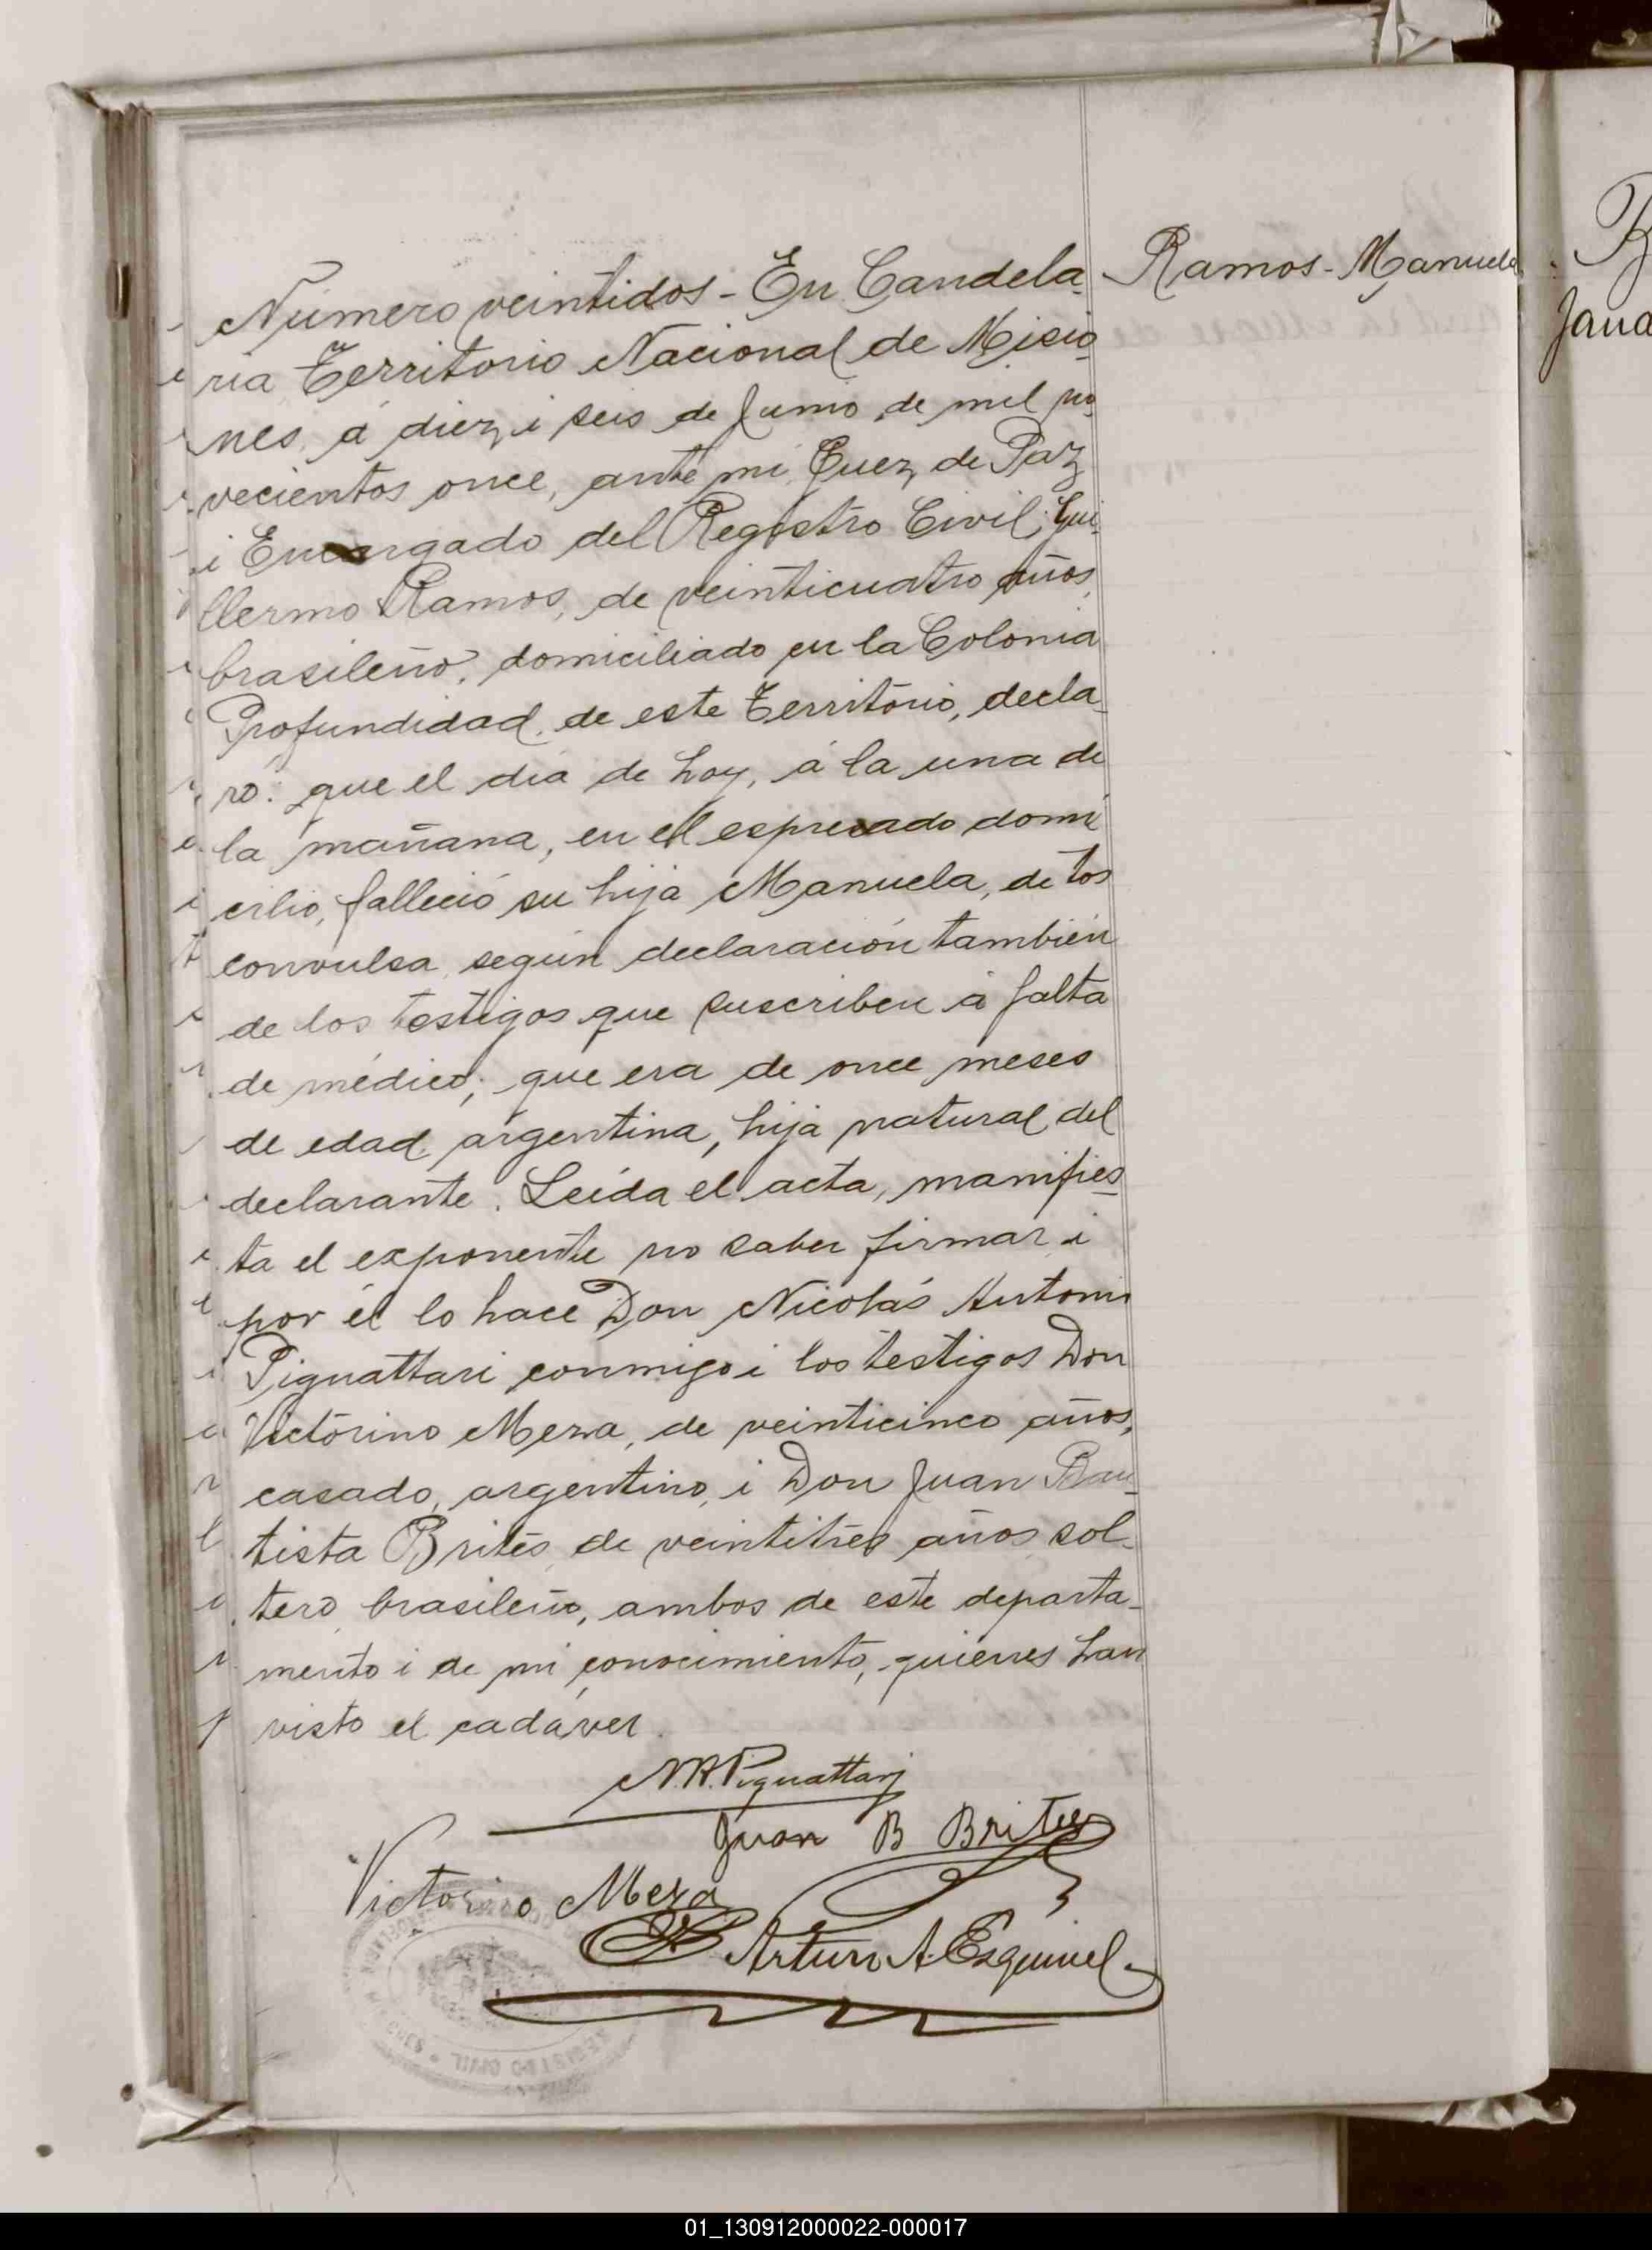 Número veintidos - En Candela-
ria Territorio Nacional de Misio-
nes, á diez i seis de Junio de mil no-
vecientos once, ante mi, Juez de Paz
i Encargado del Registro Civil, Gui-
llermo Ramos, de veinticuatro años,
brasileño, domiciliado en la Colonia
Profundidad, de este Territorio, decla-
ró: que el día de hoy, á la una de
la mañana, en el espresado domi-
cilio, falleció su hija Manuela, de tos
convulsa, según declaración también
de los testigos que suscriben á falta
de médico; que era de once meses
de edad, argentina, hija natural del
declarante. Leída el acta, manifies-
ta el exponente no saber firmar i
por él lo hace Don Nicolás Antonio
Piguattari conmigo i los testigos Don
Victorino Meza, de veinticinco años,
casado, argentino, i Don Juan Bau-
tista Brites, de veintitrés años, sol-
tero, brasileño, ambos de este departa-
mento i de mi conocimiento, quienes han
visto el cadáver.
Ramos - Manuela
N. A. Piguattari
Juan B Brites
Victorino Meza
Arturo A. Esquivel
REGISTRO CIVIL
01_130912000022-000017